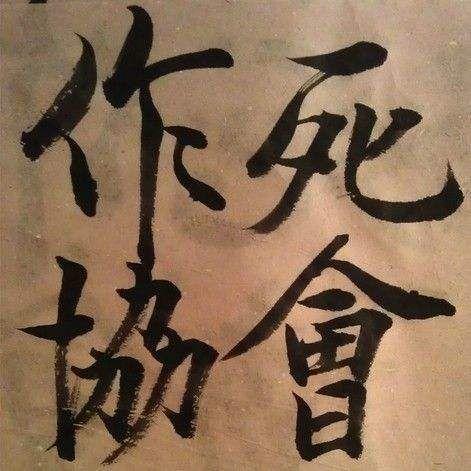 作死
協會